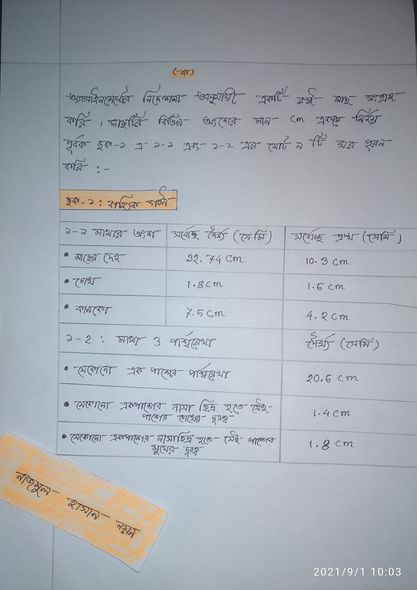 (ক)
অ্যাসাইনমেন্টের নির্দেশনা অনুযায়ী একটি রুই মাছ সংগ্রহ
করি। মাছটির বিভিন্ন অংশের মান cm এককে নির্ণয়
পূর্বক ছক-১ এ ১-১ এবং ১-২ এর মোট ৬ টি ঘর পূরণ
করি :-
ছক-১: বাহ্যিক গঠন
১-১ মাথার অংশ সর্বোচ্চ দৈর্ঘ্য (সেমি) সর্বোচ্চ প্রস্থ (সেমি)
• মাছের দেহ 22.74 cm 10.3 cm
• চোখ 1.8 cm 1.6 cm
• কানকো 7.5 cm 4.2 cm
১-২: মাথা ও পার্শ্বরেখা দৈর্ঘ্য (সেমি)
• যেকোনো এক পাশের পার্শ্বরেখা 20.6 cm
• যেকোনো একপাশের নাসা ছিদ্র হতে সেই
পাশের চোখের দূরত্ব 1.4 cm
• যেকোনো একপাশের নাসাছিদ্র হতে সেই পাশের
মুখের দূরত্ব 1.8 cm
নাজমুল হাসান নয়ন
2021/9/1 10:03